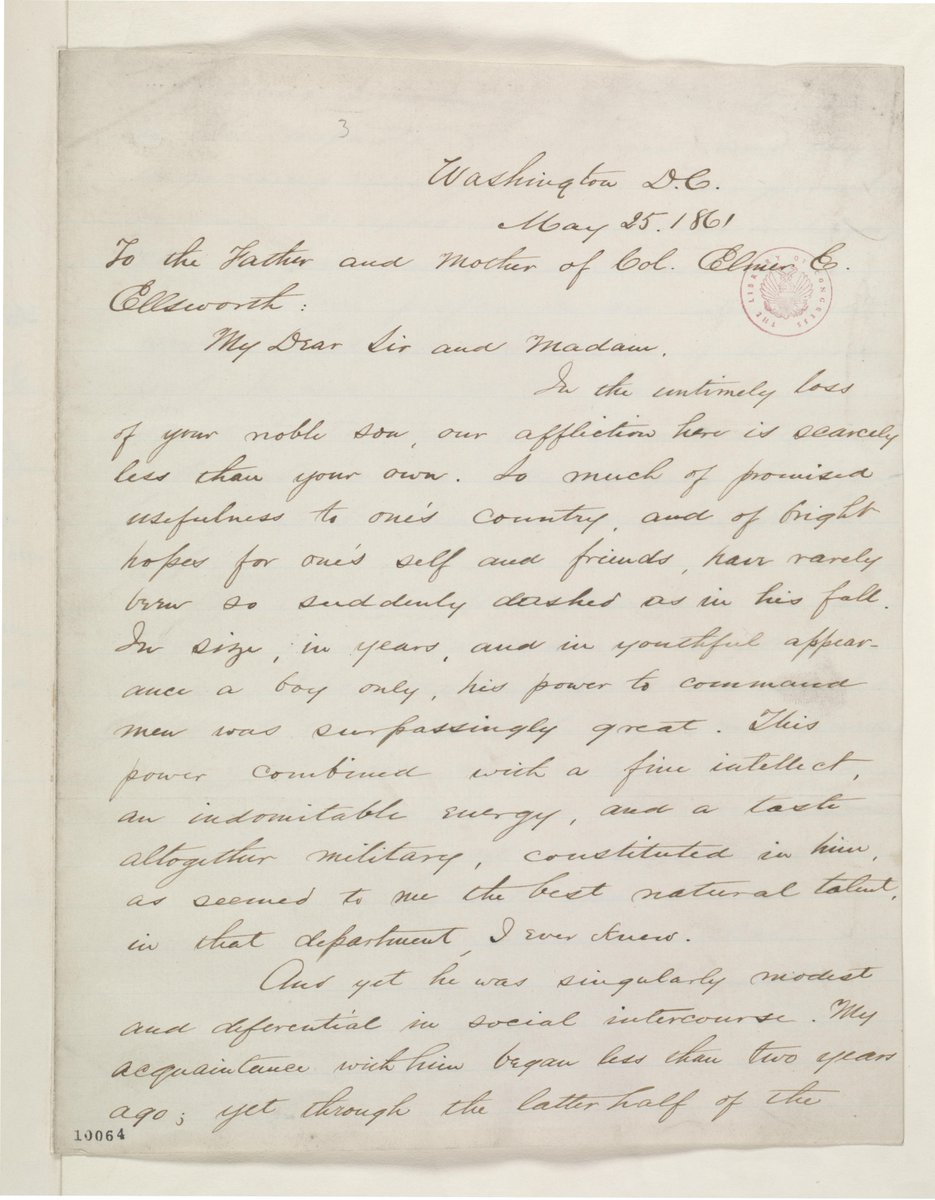 3
Washington D.C.
May 25. 1861
To the Father and Mother of Col. Elmer E.
Ellsworth:
My Dear Sir and Madam,
In the untimely loss
of your noble son, our affliction here is scarcely
less than your own. So much of promised
usefulness to one's country, and of bright
hopes for one's self and friends, have rarely
been so suddenly dashed as in his fall.
In size, in years, and in youthful appear-
ance a boy only, his power to command
men was surpassingly great. This
power combined with a fine intellect,
an indomitable energy, and a taste
altogether military, constituted in him,
as seemed to me the best natural talent,
in that department, I ever knew.
And yet he was singularly modest
and diferential in social intercourse. My
acquaintance with him began less than two years
ago; yet through the latter half of the
10064
THE LIBRARY OF CONGRESS